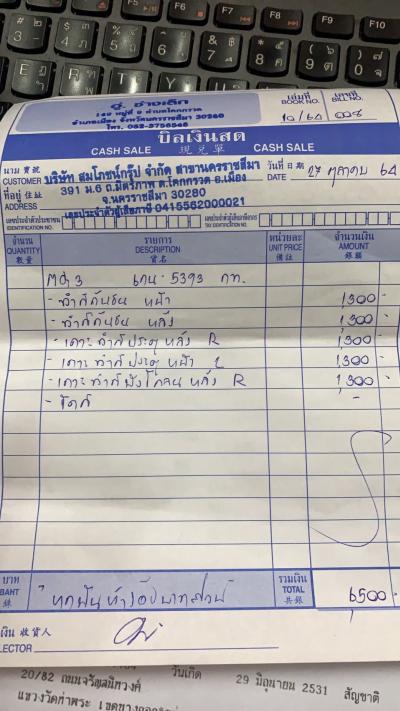 อู่ ช่างเล็ก
149 หมู่ที่ 6 ตำบลโคกกรวด
อำเภอเมือง จังหวัดนครราชสีมา 30280
โทร.
เล่มที่ BOOK NO. 10/64 เลขที่ BILL NO. 008
บิลเงินสด
CASH SALE 現兌單 CASH SALE
นาม 買號 CUSTOMER บริษัท สมโภชน์กรุ๊ป จำกัด สาขานครราชสีมา วันที่ 日期 DATE 27 ตุลาคม 64
ที่อยู่ 住址 ADDRESS 391 ม.6 ถ.มิตรภาพ ต.โคกกรวด อ.เมือง
จ.นครราชสีมา 30280
เลขประจำตัวประชาชน IDENTIFICATION NO. เลขประจำตัวผู้เสียภาษี 0415562000021
จำนวน QUANTITY 數量 รายการ DESCRIPTION 貨名 หน่วยละ UNIT PRICE 備註 จำนวนเงิน AMOUNT 銀額
5393 กท.
- ทำสีกันชน หน้า 1,300 -
- ทำสีกันชน หลัง 1,300 -
- เคาะ ทำสี ประตู หลัง R 1,300 -
- เคาะ ทำสี ประตู หน้า L 1,300 -
- เคาะ ทำสี บังโคลน หลัง R 1,300 -
บาท BAHT 銖 หกพันห้าร้อยบาทถ้วน รวมเงิน TOTAL 共銀 6500 -
เงิน 收貨人
LECTOR
20/82 ถนนจรัญสนิทวงศ์ วันเกิด 29 มิถุนายน 2531 สัญชาติ
แขวงวัดท่าพระ